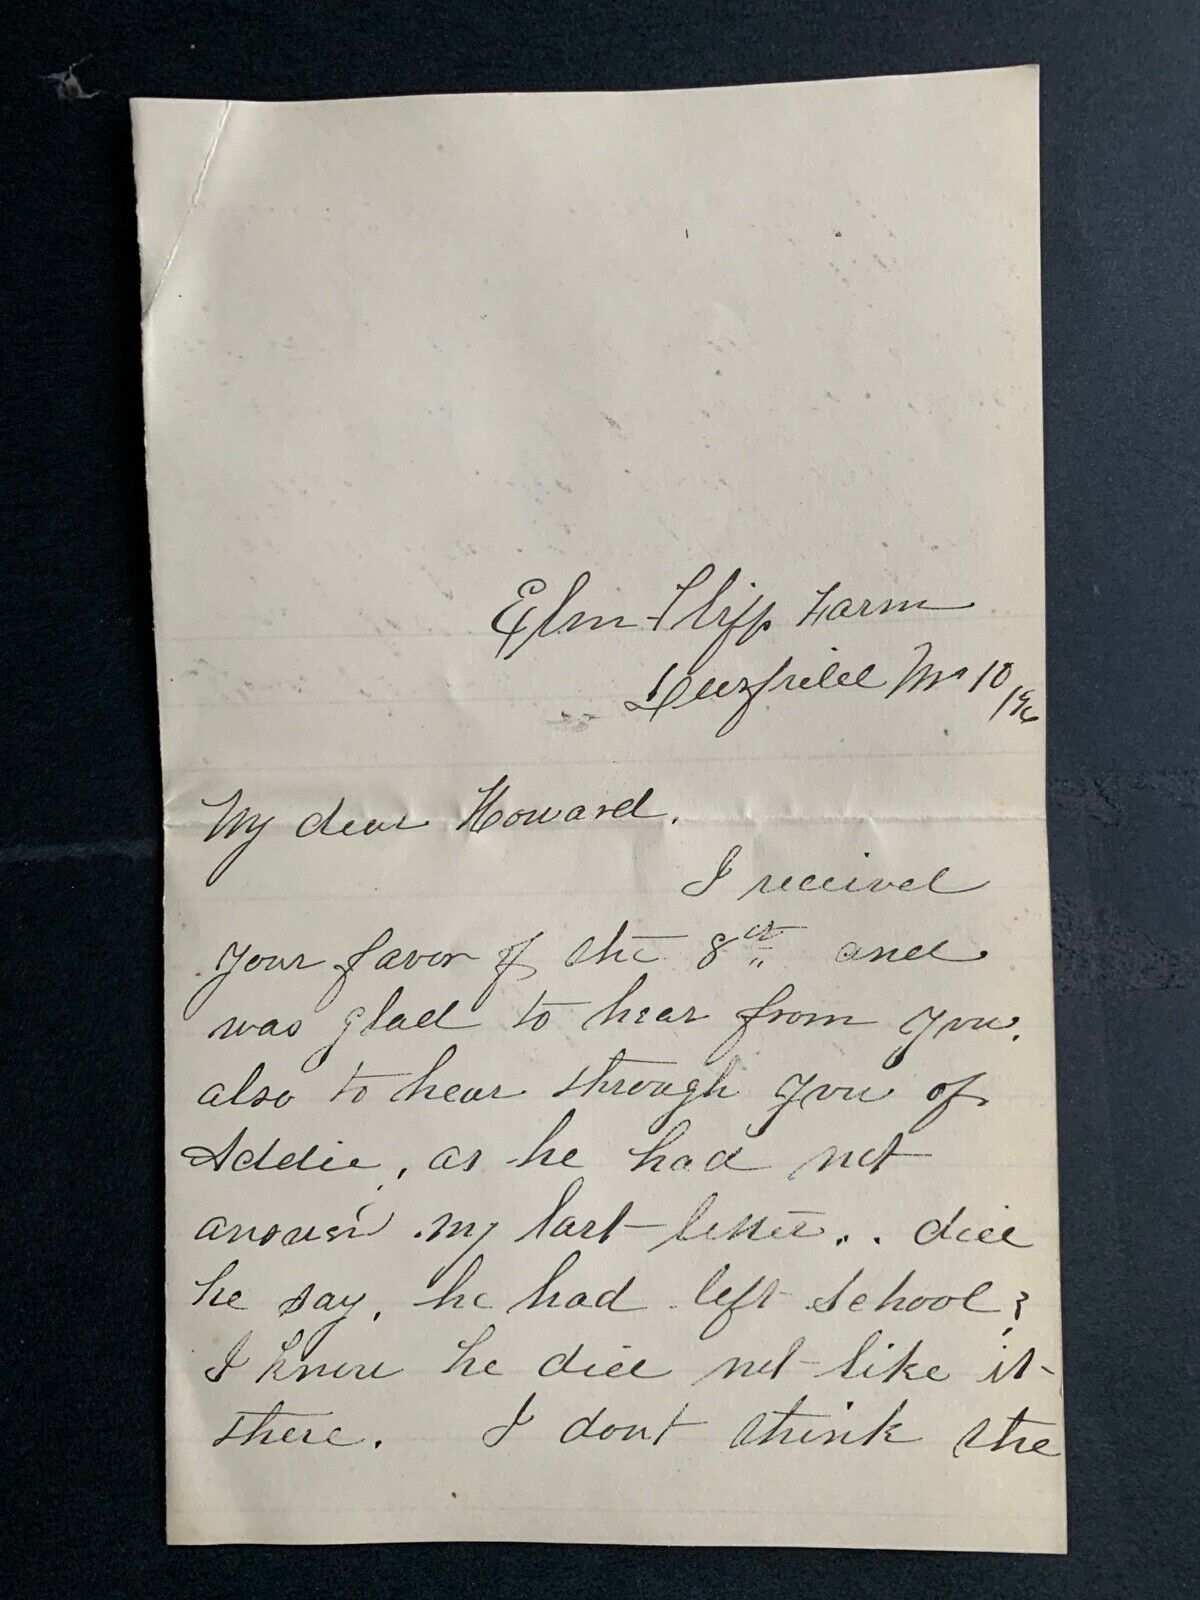 Elm Farm
10
/96
My dear Howard.
I received
your favor of the 8th and
was glad to hear from you.
also to hear through you of
Addie, as he had not
answer my last letter.. did
he say, he had left school?
I know he did not like it
there. I dont think the